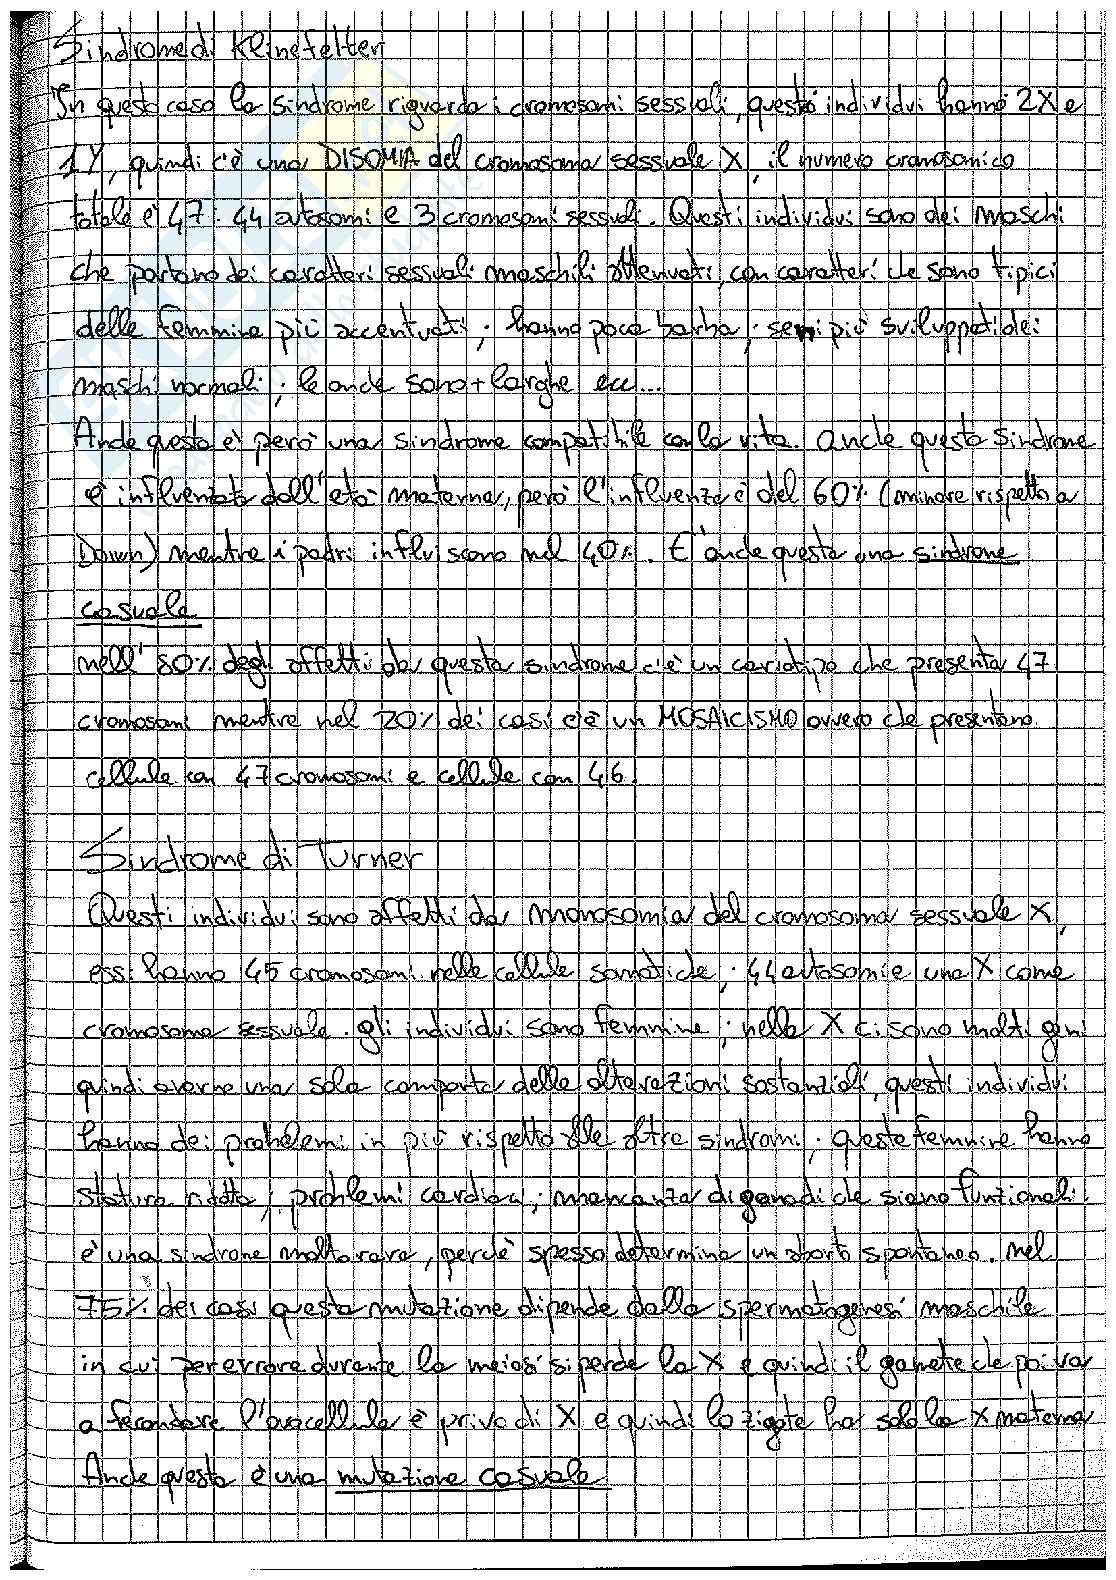 Sindrome di Klinefelter
In questo caso la sindrome riguarda i cromosomi sessuali, questi individui hanno 2X e
1Y, quindi c'è una DISOMIA del cromosoma sessuale X, il numero cromosomico
totale è 47: 44 autosomi e 3 cromosomi sessuali. Questi individui sono dei maschi
che portano dei caratteri sessuali maschili attenuati, con caratteri che sono tipici
delle femmine più accentuati; hanno poca barba; seni più sviluppati dei
maschi normali; le anche sono + larghe ecc...
Anche questa è però una sindrome compatibile con la vita. anche questa sindrome
è influenzata dall'età materna, però l'influenza è del 60% (minore rispetto a
Down) mentre i padri influiscono nel 40%. E' anche questa una sindrome
casuale
nell' 80% degli affetti da questa sindrome c'è un cariotipo che presenta 47
cromosomi mentre nel 20% dei casi c'è un MOSAICISMO ovvero che presentano
cellule con 47 cromosomi e cellule con 46.
Sindrome di Turner
Questi individui sono affetti da monosomia del cromosoma sessuale X,
essi hanno 45 cromosomi nelle cellule somatiche; 44 autosomi e una X come
cromosoma sessuale. gli individui sono femmine; nella X ci sono molti geni
quindi averne una sola comporta delle alterazioni sostanziali, questi individui
hanno dei problemi in più rispetto alle altre sindromi. queste femmine hanno
statura ridotta; problemi cardiaci; mancanza di gonadi che siano funzionali.
è una sindrone molto rara, perchè spesso determina un aborto spontaneo. nel
75% dei casi questa mutazione dipende dalla spermatogenesi maschile
in cui per errore durante la meiosi si perde la X e quindi il gamete che poi va
a fecondare l'ovocellula è privo di X e quindi lo zigote ha solo la X materna
Anche questa è una mutazione casuale